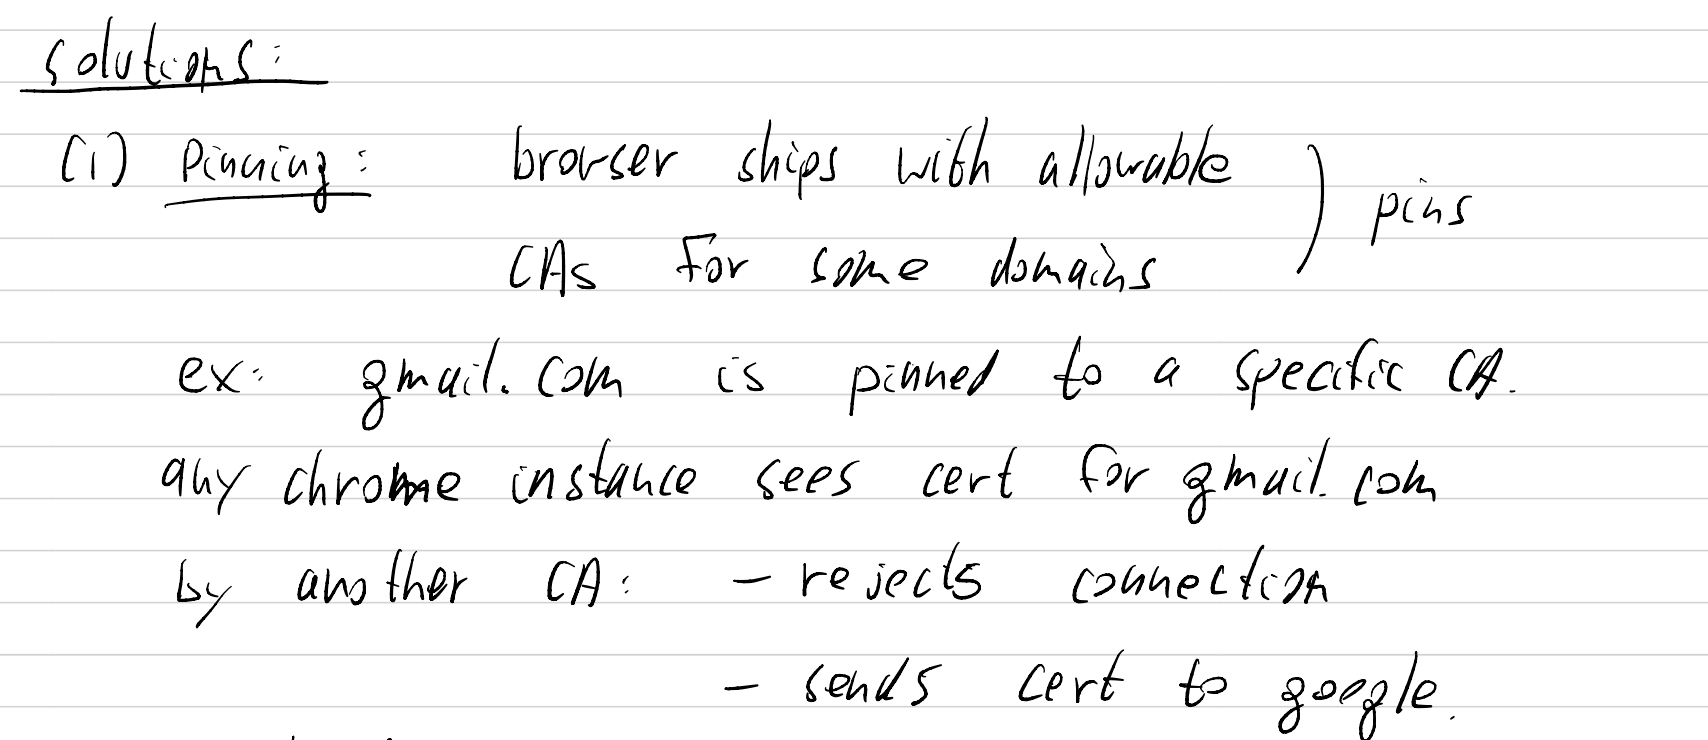 solutions:
(1) Pinning: browser ships with allowable
CAs for some domains ) pins
ex: gmail.com is pinned to a specific CA.
any chrome instance sees cert for gmail.com
by another CA: – rejects connection
– sends cert to google.